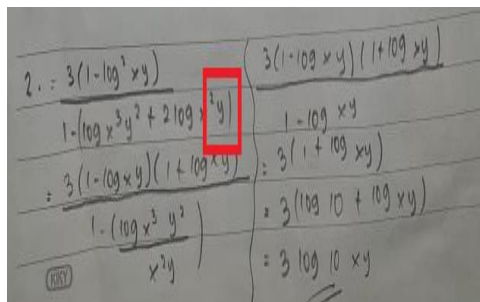 2. = 3(1-log² xy)
1-(log x³y² + 2 log x²y)
= 3(1-log xy)(1+log xy)
1-(log x³ y²
x²y)
KKY
3(1-log xy)(1+log xy)
1-log xy
= 3(1+log xy)
= 3(log 10 + log xy)
= 3 log 10 xy